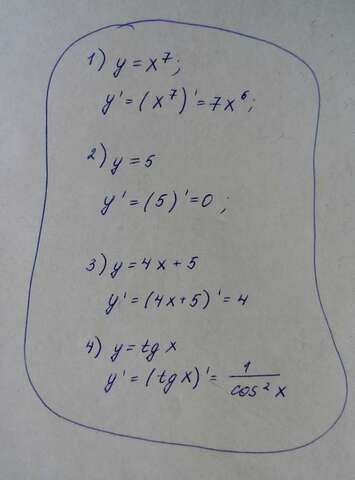 1) y = x⁷;
y' = (x⁷)' = 7x⁶;
2) y = 5
y' = (5)' = 0;
3) y = 4x + 5
y' = (4x + 5)' = 4
4) y = tg x
y' = (tg x)' = 1/cos² x